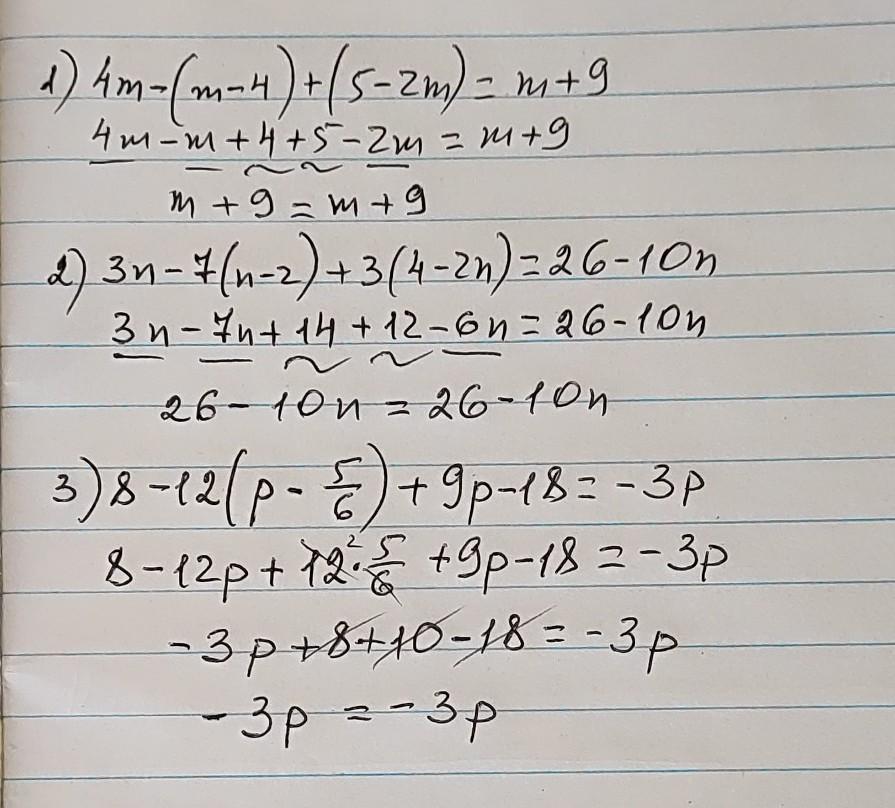 1) 4m-(m-4)+(5-2m)=m+9
4m-m+4+5-2m=m+9
m+9=m+9
2) 3n-7(n-2)+3(4-2n)=26-10n
3n-7n+14+12-6n=26-10n
26-10n=26-10n
3) 8-12(p-5/6)+9p-18=-3p
8-12p+12²·5/6+9p-18=-3p
-3p+8+10-18=-3p
-3p=-3p